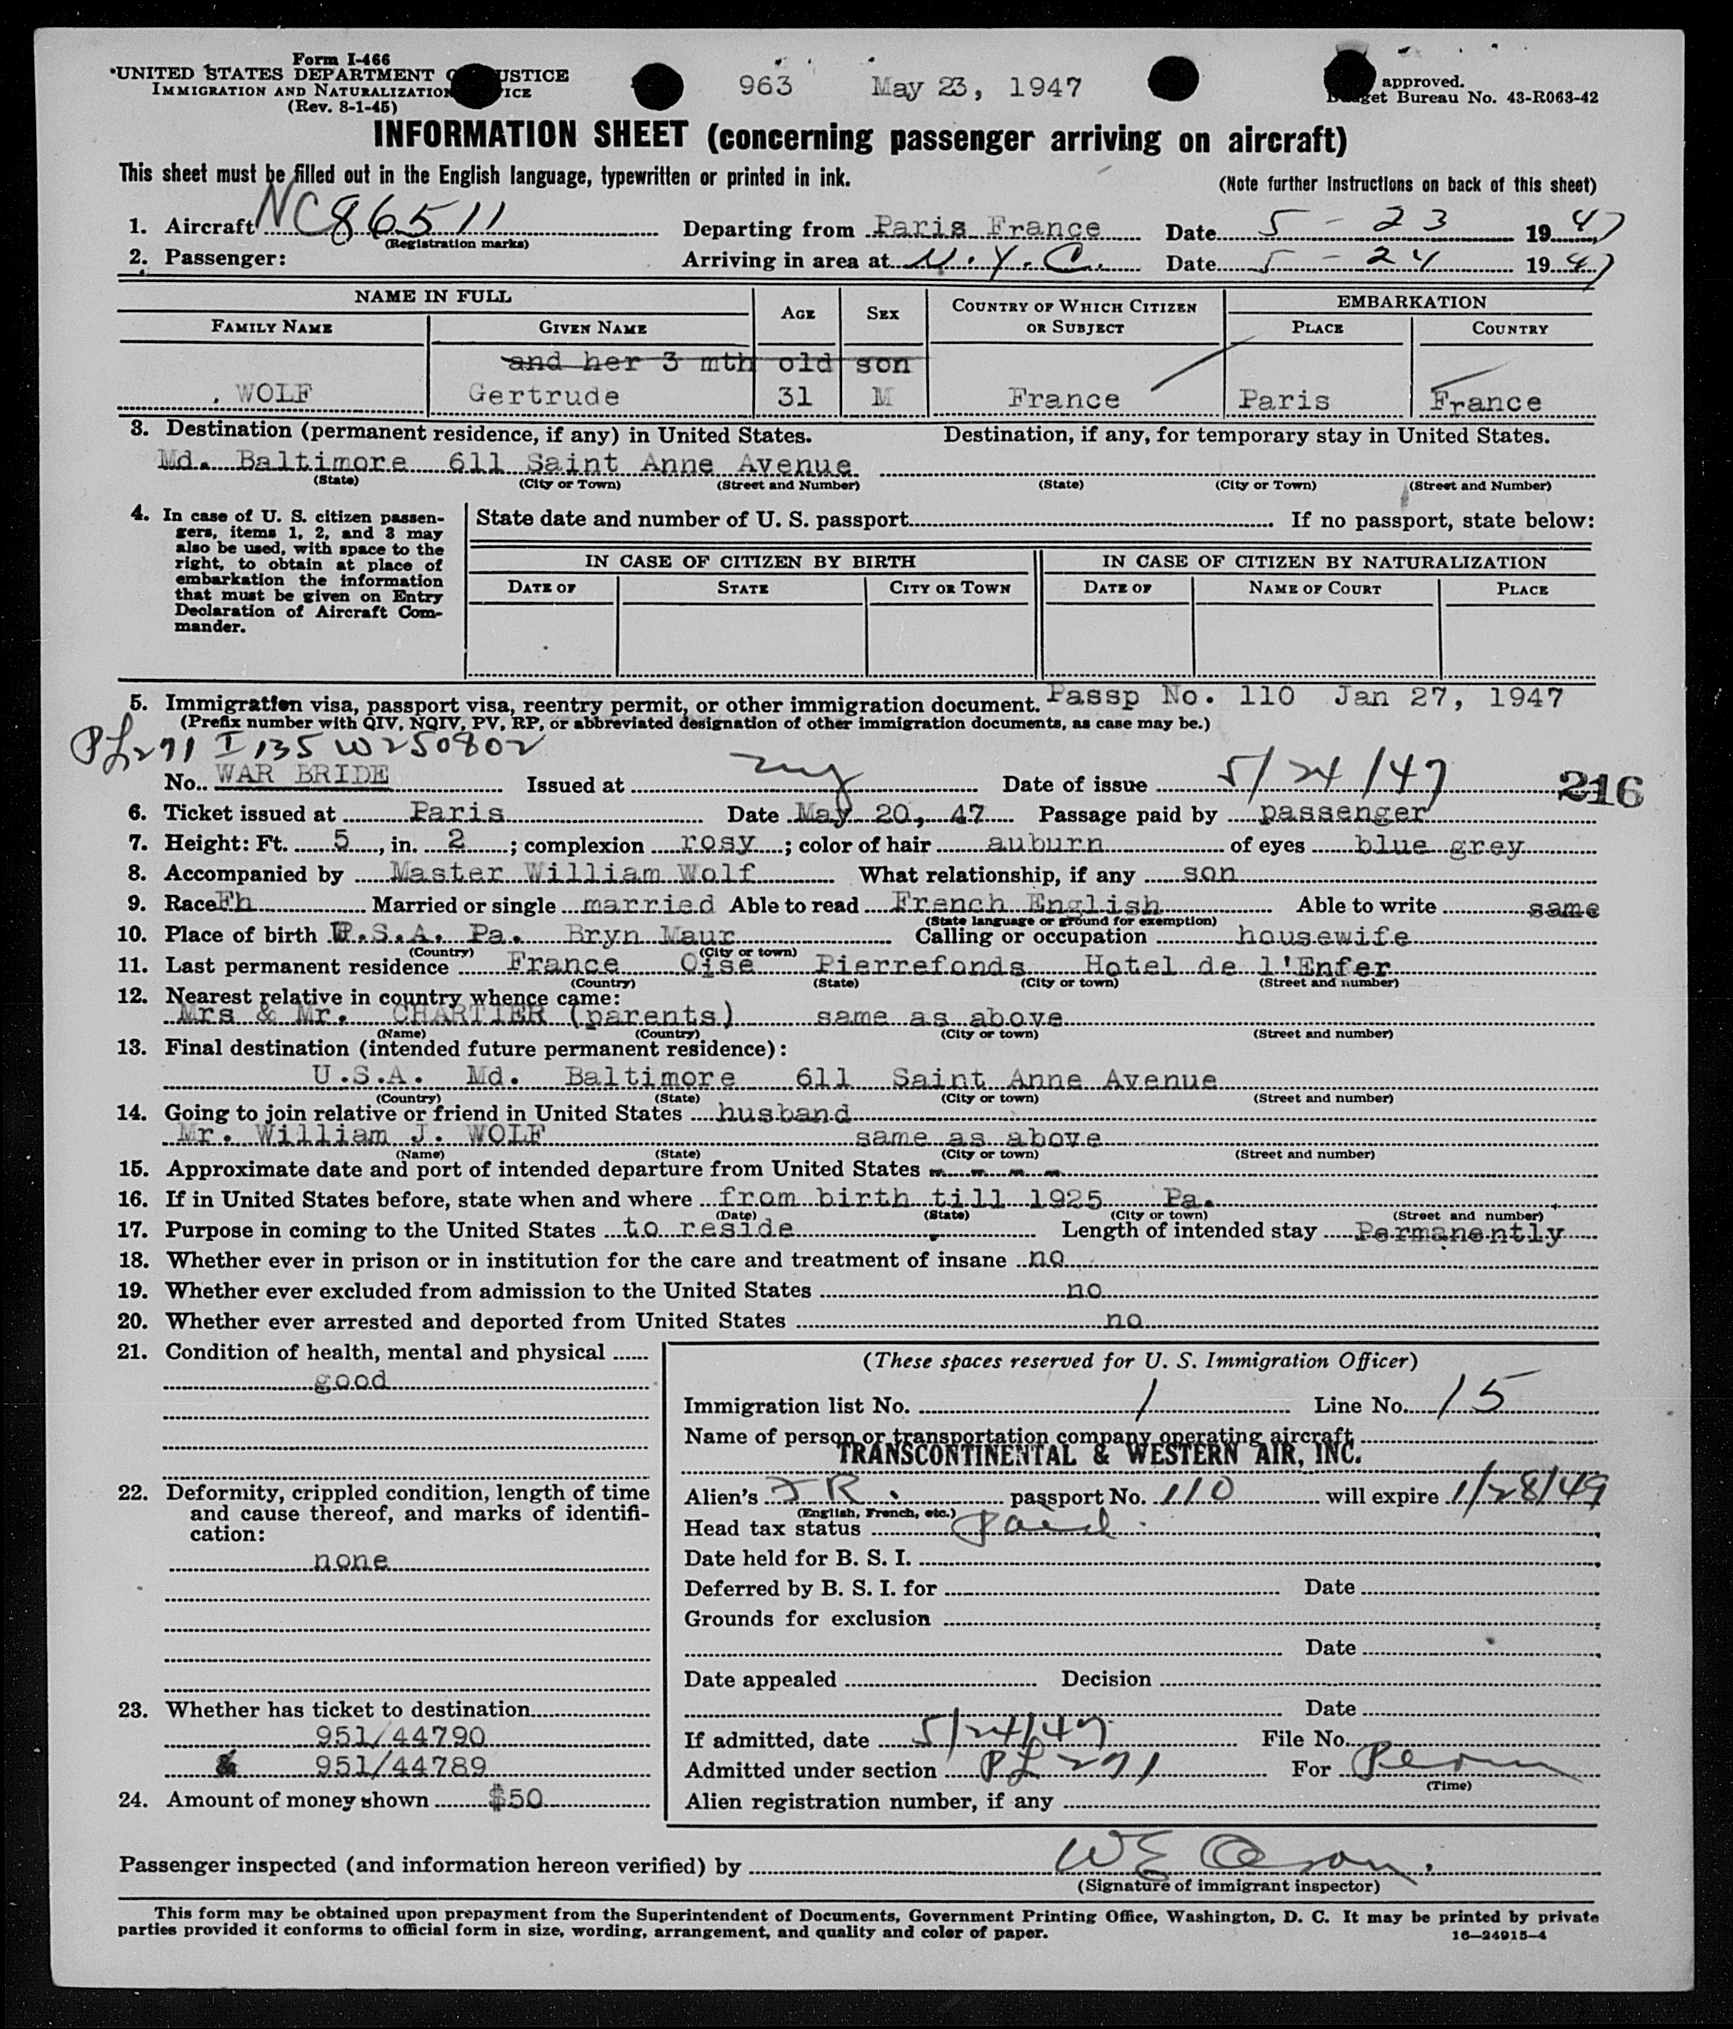 Form I-466
UNITED STATES DEPARTMENT OF JUSTICE
IMMIGRATION AND NATURALIZATION SERVICE
(Rev. 8-1-45)
963 May 23, 1947
approved.
Budget Bureau No. 43-R063-42
INFORMATION SHEET (concerning passenger arriving on aircraft)
This sheet must be filled out in the English language, typewritten or printed in ink.
(Note further instructions on back of this sheet)
1. Aircraft NC86511 Departing from Paris France Date 5-23 1947
(Registration marks)
2. Passenger: Arriving in area at N.Y.C. Date 5-24 1947
NAME IN FULL AGE SEX COUNTRY OF WHICH CITIZEN OR SUBJECT EMBARKATION
FAMILY NAME GIVEN NAME PLACE COUNTRY
and her 3 mth old son
WOLF Gertrude 31 M France Paris France
3. Destination (permanent residence, if any) in United States. Destination, if any, for temporary stay in United States.
Md. Baltimore 611 Saint Anne Avenue
(State) (City or Town) (Street and Number) (State) (City or Town) (Street and Number)
4. In case of U. S. citizen passengers, items 1, 2, and 3 may also be used, with space to the right, to obtain at place of embarkation the information that must be given on Entry Declaration of Aircraft Commander.
State date and number of U. S. passport If no passport, state below:
IN CASE OF CITIZEN BY BIRTH IN CASE OF CITIZEN BY NATURALIZATION
DATE OF STATE CITY OR TOWN DATE OF NAME OF COURT PLACE
5. Immigration visa, passport visa, reentry permit, or other immigration document. Passp No. 110 Jan 27, 1947
(Prefix number with QIV, NQIV, PV, RP, or abbreviated designation of other immigration documents, as case may be.)
PL271 I 135 W250802
No. WAR BRIDE Issued at ny Date of issue 5/24/47 216
6. Ticket issued at Paris Date May 20, 47 Passage paid by passenger
7. Height: Ft. 5, in. 2; complexion rosy; color of hair auburn of eyes blue grey
8. Accompanied by Master William Wolf What relationship, if any son
9. Race Fh Married or single married Able to read French English Able to write same
(State language or ground for exemption)
10. Place of birth U.S.A. Pa. Bryn Maur Calling or occupation housewife
(Country) (City or town)
11. Last permanent residence France Oise Pierrefonds Hotel de l'Enfer
(Country) (State) (City or town) (Street and number)
12. Nearest relative in country whence came:
Mrs & Mr. CHARTIER (parents) same as above
(Name) (Country) (City or town) (Street and number)
13. Final destination (intended future permanent residence):
U.S.A. Md. Baltimore 611 Saint Anne Avenue
(Country) (State) (City or town) (Street and number)
14. Going to join relative or friend in United States husband
Mr. William J. WOLF same as above
(Name) (State) (City or town) (Street and number)
15. Approximate date and port of intended departure from United States - - - -
16. If in United States before, state when and where from birth till 1925 Pa.
(Date) (State) (City or town) (Street and number)
17. Purpose in coming to the United States to reside Length of intended stay Permanently
18. Whether ever in prison or in institution for the care and treatment of insane no
19. Whether ever excluded from admission to the United States no
20. Whether ever arrested and deported from United States no
21. Condition of health, mental and physical
good
22. Deformity, crippled condition, length of time and cause thereof, and marks of identification:
none
23. Whether has ticket to destination
951/44790
& 951/44789
24. Amount of money shown $50
(These spaces reserved for U. S. Immigration Officer)
Immigration list No. 1 Line No. 15
Name of person or transportation company operating aircraft
TRANSCONTINENTAL & WESTERN AIR, INC.
Alien's FR. passport No. 110 will expire 1/28/49
(English, French, etc.)
Head tax status Paid
Date held for B. S. I.
Deferred by B. S. I. for Date
Grounds for exclusion
Date
Date appealed Decision
Date
If admitted, date 5/24/47 File No.
Admitted under section PL 271 For Perm
(Time)
Alien registration number, if any
Passenger inspected (and information hereon verified) by W E
(Signature of immigrant inspector)
This form may be obtained upon prepayment from the Superintendent of Documents, Government Printing Office, Washington, D. C. It may be printed by private
parties provided it conforms to official form in size, wording, arrangement, and quality and color of paper.
16—24915-4